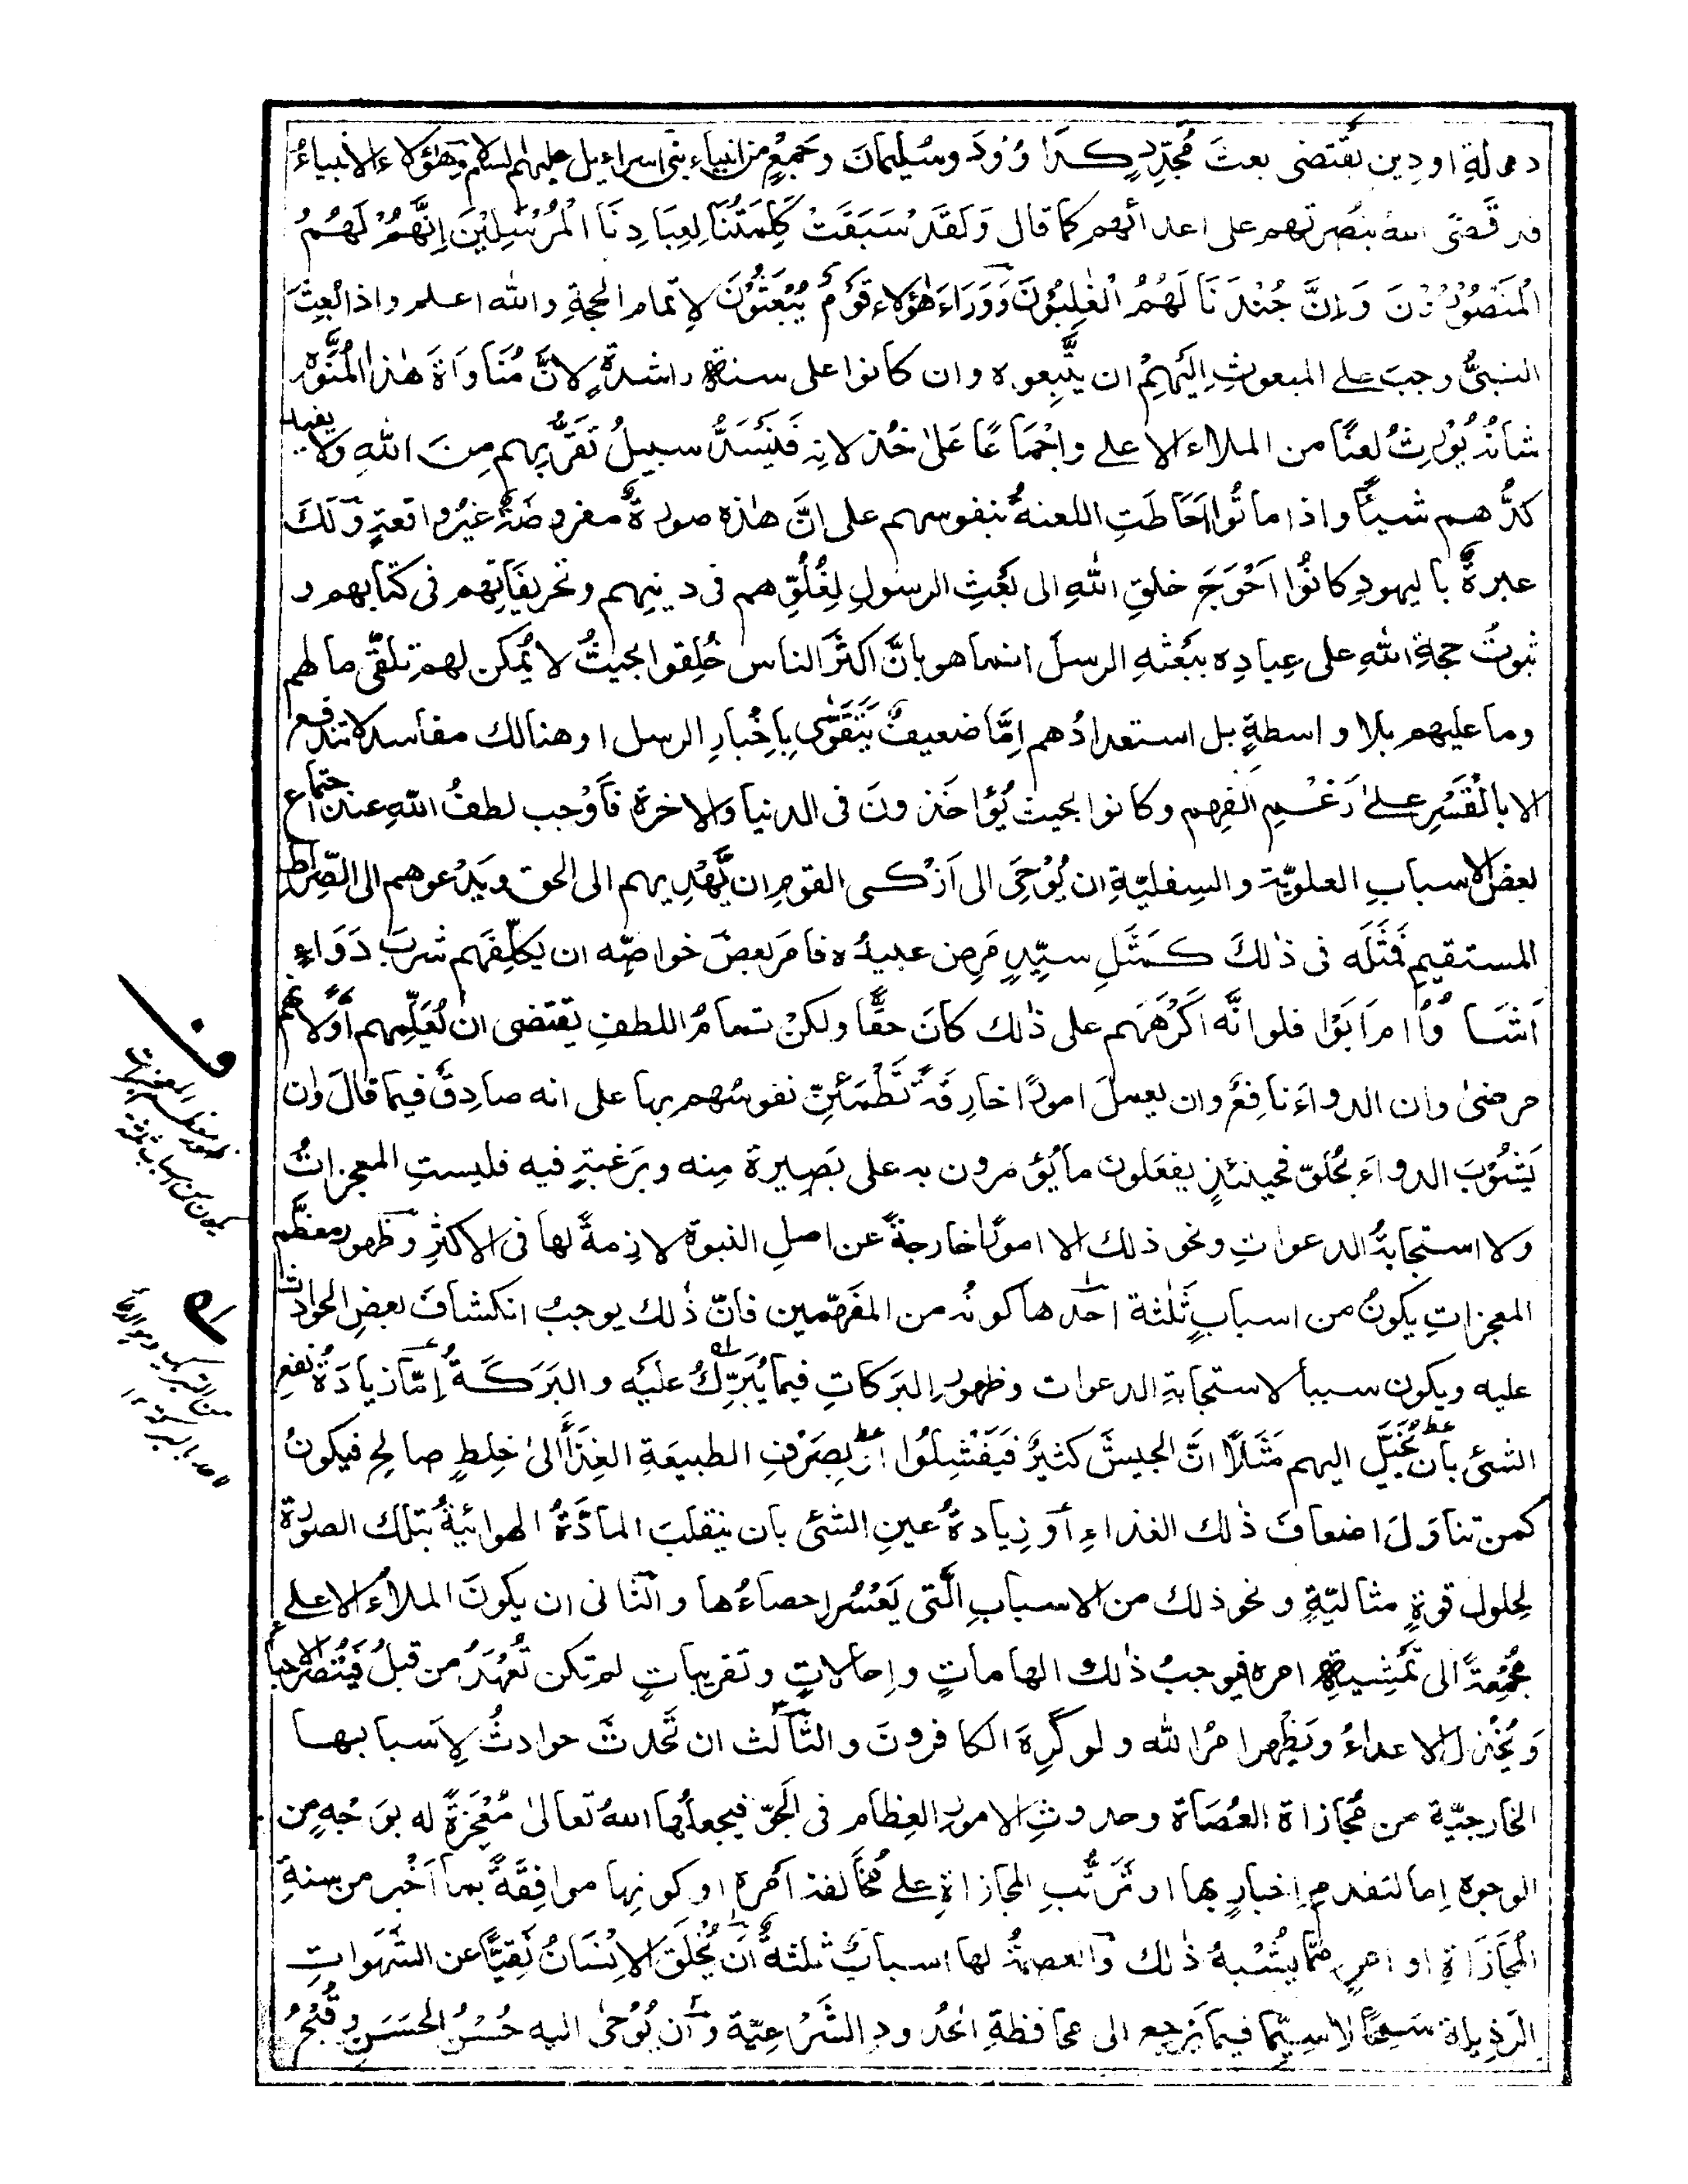 دولة او دين يقتضى بعثَ مُجدِّدٍ كداؤدَ وسُليمانَ وجمعٍ من انبياء بنى اسراءيل عليهم السلام وهٰؤلاءِ الانبياءُ
قد قَضَى اللهُ بنُصرتهم على اعدائهم كما قال وَلَقَدْ سَبَقَتْ كَلِمَتُنَا لِعِبَادِنَا الْمُرْسَلِيْنَ إِنَّهُمْ لَهُمُ
الْمَنْصُوْرُوْنَ وَإِنَّ جُنْدَنَا لَهُمُ الْغٰلِبُوْنَ وَوَرَاءَ هٰؤلاء قَوْمٌ يُبْعَثُوْنَ لاتمام الحجةِ والله اعلم واذا بُعِثَ
النبىُّ وجبَ على المبعوثِ اليَهِمْ ان يتَّبِعوه وان كانوا على سنةٍ راشدةٍ لانَّ مُنَاوَاةَ هٰذا المُنَوَّهِ
شانُهُ يُوْرِثُ لعنًا من الملاء الاعلى واِجْمَاعًا عَلىٰ خُذلانِهٖ فَيَنْسَدُّ سبيلُ تَقَرُّبِهم مِنَ اللهِ ولا يفيد
كدُّهم شيئًا واذا ماتُوا اَحَاطَتِ اللعنةُ بنفوسهم على انَّ هٰذه صورةٌ مفروضةٌ غيرُ واقعةٍ ولَكَ
عبرةٌ باليهودِ كانُوا اَحْوَجَ خلقِ اللهِ الى بَعْثِ الرسولِ لِغُلُوِّهم فى دينِهم وتحريفَاتِهم فى كتابهم و
ثبوتُ حجةِ اللهِ على عبادِه ببَعْثهِ الرسلَ انما هو بانَّ اكثَرَ الناس خُلِقوا بحيثُ لا يُمكن لهم تلقّى ما لهم
وما عليهم بلا واسطةٍ بل استعدادُهم اِمَّا ضعيفٌ يَتَقَوّٰى بِاِخْبارِ الرسل او هنالك مفاسد لا تندفع
الا بالْقَسْرِ علىٰ رَغْمِ انفِهم وكانوا بحيث يُؤاخَذونَ فى الدنيا والاخرة فاَوْجب لطفُ اللهِ عند اجتماع
بعض الاسبابِ العلويّة والسفليّةِ ان يُوْحَى الى اَزْكى القومِ ان يَّهْدِيهم الى الحق ويَدْعوهم الى الصِّراط
المستقيم فَمَثَلَه فى ذٰلكَ كَمَثَلِ سيّدٍ مَرِض عبيدُه فامَر بعضَ خواصِّه ان يكلِّفَهم شربَ دَوَاءٍ
اَشَاءُوْا ام اَبَوْا فلو انَّه اكرَهَهم على ذٰلك كانَ حقًّا ولكنْ تمامُ اللطفِ يقتضى ان يُعَلِّمهم اوّلًا انهم
مرضىٰ وان الدواءَ نافعٌ وان يعملَ امورًا خارقَةً تَطْمَئِنّ نفوسُهم بها على انه صادقٌ فيما قالَ وان
يَشُوْبَ الدواءَ بحُلوٍ فحينئذٍ يفعَلون ما يُؤمرون به على بَصِيرة مِنه وبرَغبةٍ فيه فليستِ المعجزاتُ
ولا استجابةُ الدعواتِ ونحو ذلك الا امورًا خارجةً عن اصلِ النبوة لازمةً لها فى الاكثرِ وظهور معظَم
المعجزاتِ يكونُ من اسبابٍ ثَلٰثة احدها كونُه من المفَهّمين فانّ ذٰلك يوجبُ انكشافَ بعضِ الحوادث
عليه ويكون سببا لاستجابةِ الدعوات وظهورِ البَرَكاتِ فيما يُبَرِّكُ عليَه والبَرَكَةُ اِمّا زيادَةُ نفعِ
الشئ بان يُخَيَّل اليهم مَثَلًا انَّ الجيشَ كثيرٌ فَيَفْشَلُوا او بصَرْفِ الطبيعَةِ الغِذَأ الىٰ خِلطٍ صالحٍ فيكونُ
كمن تناوَلَ اضعافَ ذٰلك الغذاءِ او زيادةُ عينِ الشئ بان ينقلبَ المادَّةُ الهوائيةُ بتلك الصورة
لحلولِ قوةٍ مثاليّةٍ ونحو ذلك من الاسبابِ الَّتى يَعْسُر احصاءُها والثانى ان يكونَ الملأُ الاعلى
مُجْمِعَةً الى تَمْشِيةِ امره فيوجبُ ذٰلك الهاماتٍ واِحالاتٍ وتقريباتٍ لم تكن تُعْهَدُ من قبلُ فيُنْصَر الاحباء
وَيُخْذل الاعداءُ ويَظْهر امرُ الله ولو كَرِهَ الكافرون والثالث ان تَحْدثَ حوادثُ لِاَسبابها
الخارجيّة من مُجازاة العُصَاة وحدوثِ الامورِ العِظام فى الجَوّ فيجعلُها اللهُ تعالىٰ مُعْجَزَةً له بوَجْهٍ من
الوجوه اما لتقدم اِخبارٍ بها او تَرَتُّبِ المجازاةِ على مُخالفةِ امْره او كونِها موافِقَةً بما اَخْبر من سنةِ
المُجَازَاةِ او امرٍ ممّا يُشْبهُ ذٰلك والعصمةُ لها اسبابٌ ثلٰثةٌ ان يُخْلَق الاِنْسَانُ نَقِيًّا عن الشَهَواتِ
الرَذيلة سَمحًا لاسيّما فيما يَرجع الى محافظةِ الحُدودِ الشَرْعيّة وان يُوْحىٰ اليه حُسْنُ الحَسَنِ وقُبْحُ